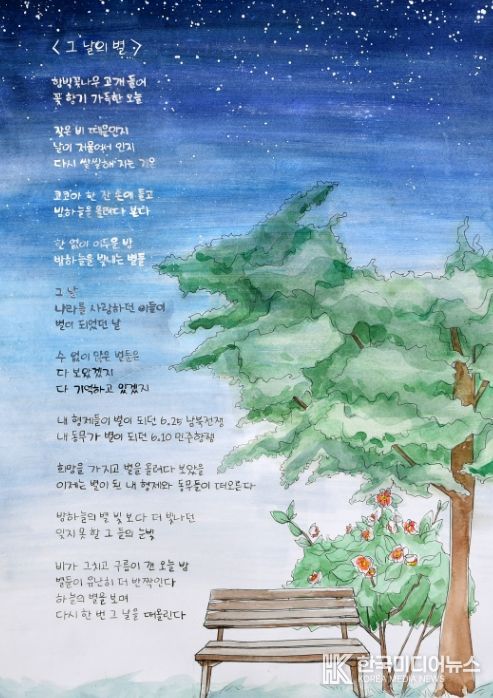 <그 날의 별>
함박꽃나무 고개 들어
꽃 향기 가득한 오늘
잦은 비 때문인지
날이 저물어서 인지
다시 쌀쌀해 지는 기온
코코아 한 잔 손에 들고
밤하늘을 올려다 본다
한 없이 어두운 밤
밤하늘을 빛내는 별들
그 날
나라를 사랑하던 이들이
별이 되었던 날
수 없이 많은 별들은
다 보았겠지
다 기억하고 있겠지
내 형제들이 별이 되던 6.25 남북전쟁
내 동무가 별이 되던 6.10 민주항쟁
희망을 가지고 별을 올려다 보았을
이제는 별이 된 내 형제와 동무들이 떠오른다
밤하늘의 별 빛 보다 더 빛나던
잊지 못 할 그 들의 눈빛
비가 그치고 구름이 갠 오늘 밤
별들이 유난히 더 반짝인다
하늘의 별을 보며
다시 한 번 그 날을 떠올린다
HK 한국미디어뉴스
KOREA MEDIA NEWS